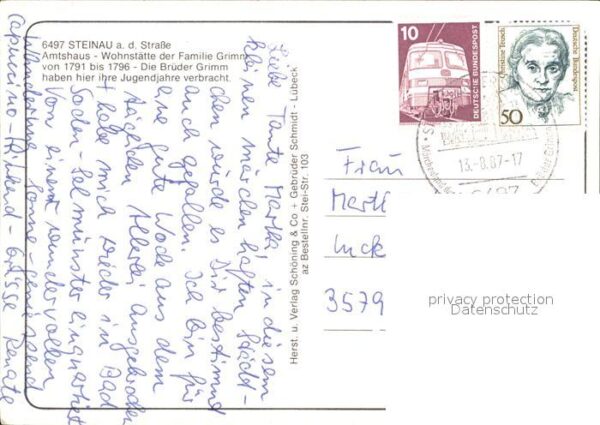 6497 STEINAU a. d. Straße
Amtshaus - Wohnstätte der Familie Grimm
von 1791 bis 1796 - Die Brüder Grimm
haben hier ihre Jugendjahre verbracht.
Liebe Tante Martha, in diesem
kleinen märchenhaften Städt-
chen würde es Dir bestimmt
auch gefallen. Ich bin für
eine gute Woche aus dem
täglichen Allerlei ausgebrochen
+ habe mich wieder in Bad
Soden-Salmünster einquartiert
Von einer wundervollen
Wanderung Sonne-geniessend
Capuccino-trinkend-Grüsse Renate
Herst. u. Verlag Schöning & Co + Gebrüder Schmidt - Lübeck
az Bestellnr. Ster-Str. 103
10
DEUTSCHE BUNDESPOST
Christine Teusch
Deutsche Bundespost
50
13.-8.87-17
6497
Frau
3579
privacy protection
Datenschutz